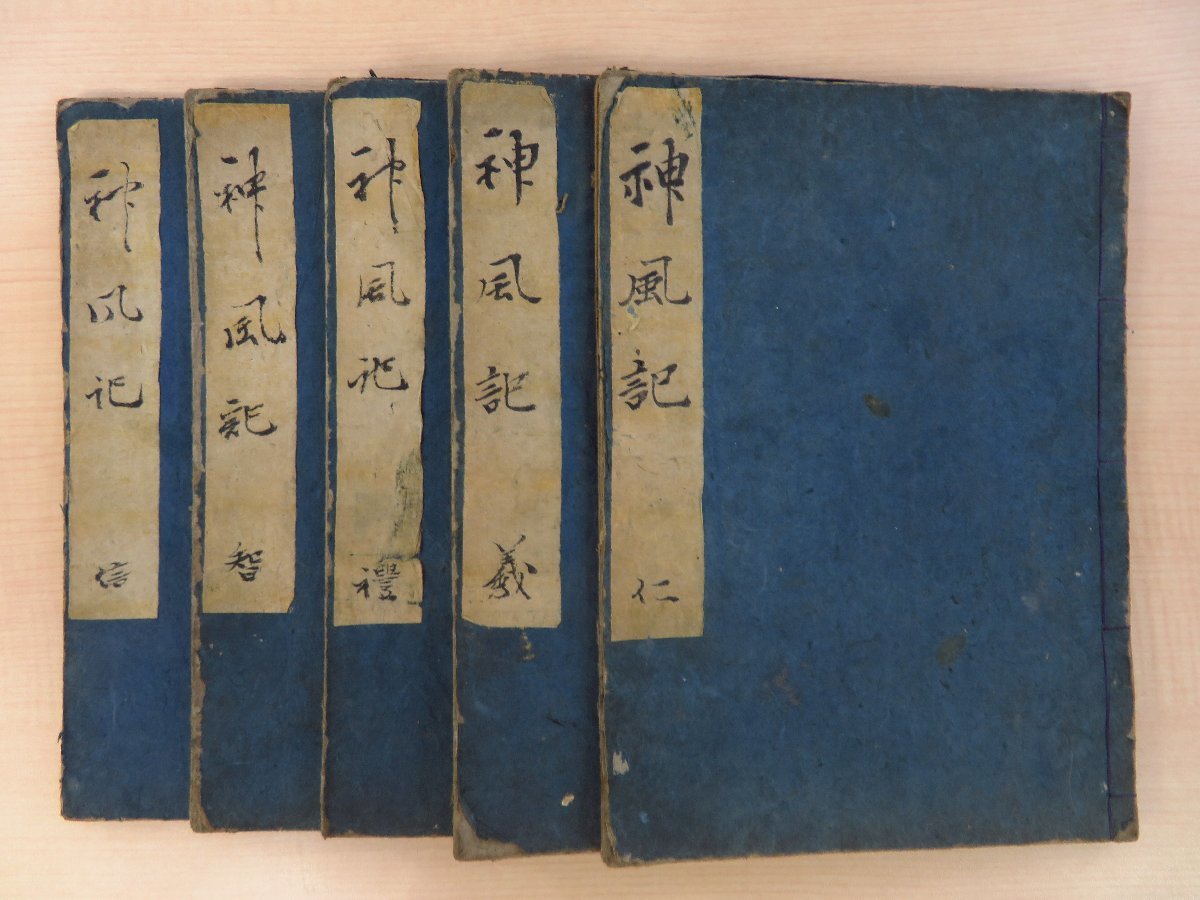 神風記 仁
神風記 義
神風記 禮
神風記 智
神風記 信